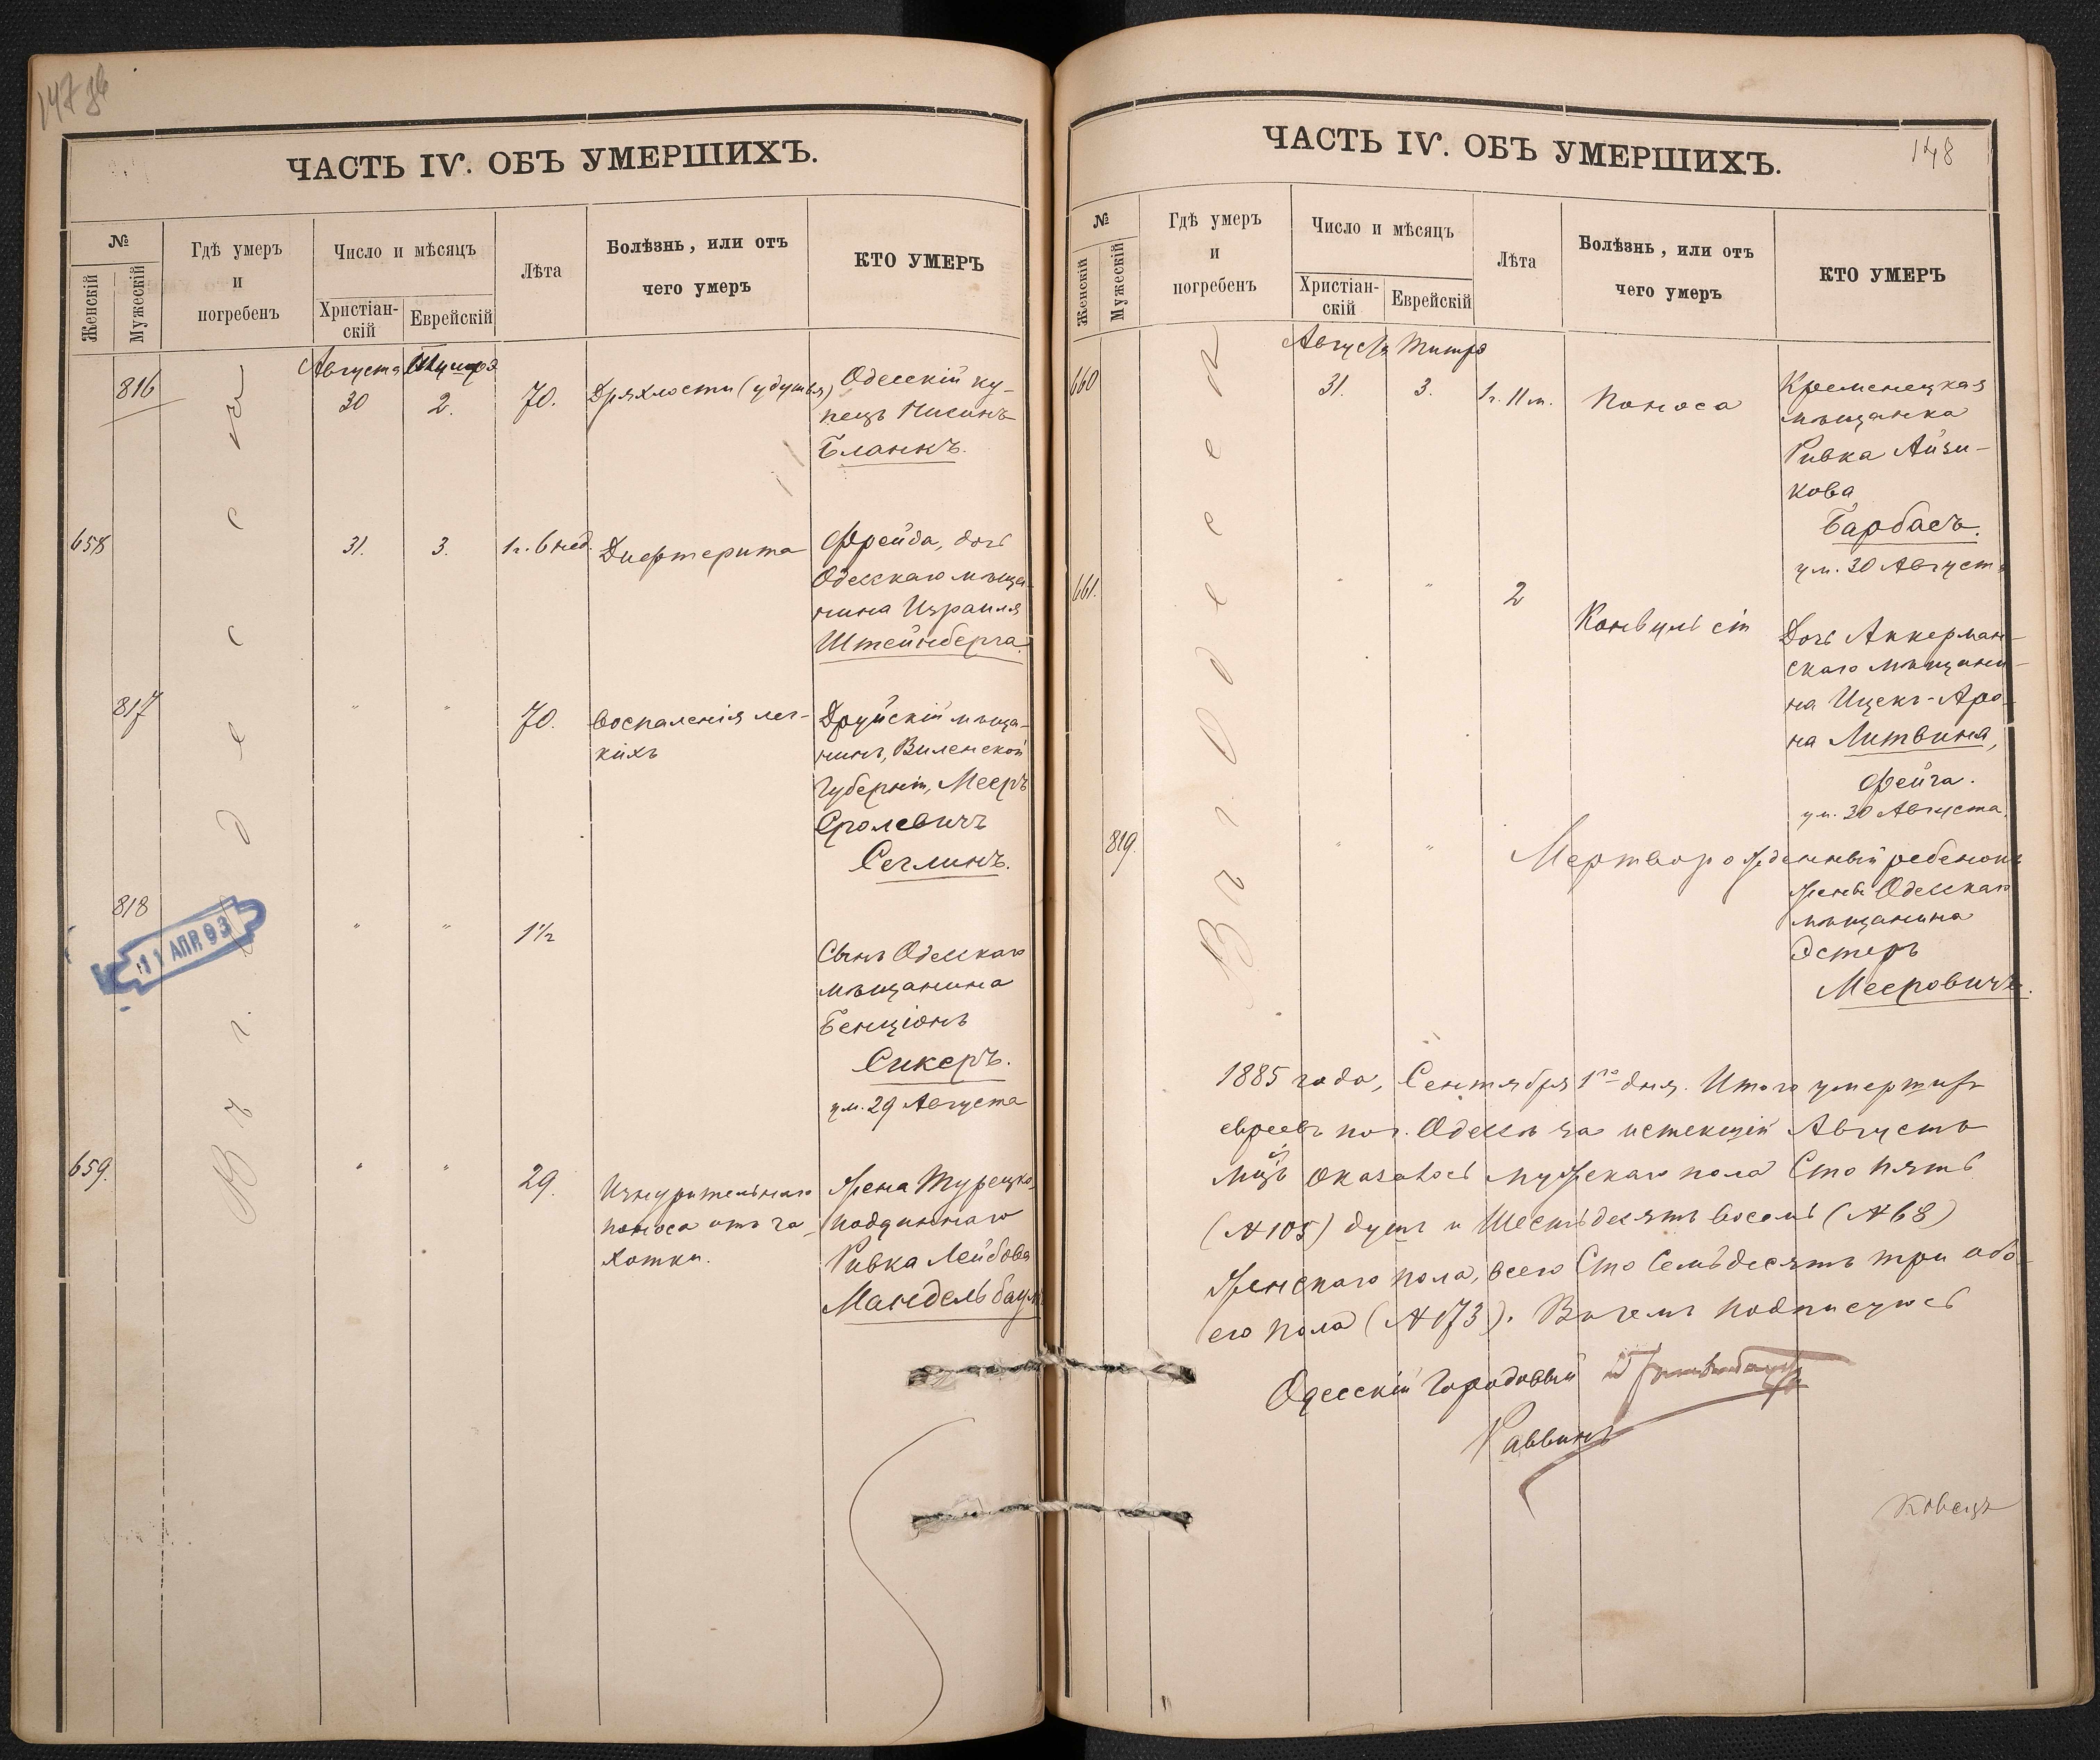 147 об
ЧАСТЬ IV. ОБЪ УМЕРШИХЪ.
№
Женскій
Мужескій
Гдѣ умеръ
и
погребенъ
Число и мѣсяцъ
Христіан-
скій
Еврейскій
Лѣта
Болѣзнь, или отъ
чего умеръ
КТО УМЕРЪ
Въ г. Одессѣ
Августа Тишра
816 30 2. 70. Дряхлости (удушья) Одесскій ку-
пецъ Нисинъ
Бланкъ.
658 31. 3. 1 г. 6 нед. Дифтерита Фрейда, дочь
Одесскаго мѣща-
нина Израиля
Штейнберга.
817 " " 70. Воспаленія лег- Друйскій мѣща-
кихъ нинъ, Виленской
Губерніи, Мееръ
Сролевичъ
Сеглинъ.
818 " " 1½
11 АПР 93
Сынъ Одесскаго
мѣщанина
Бенціонъ
Сикеръ.
ум. 29 Августа
659. " " 29. Изнурительнаго Жена Турецко-
поноса отъ ча- подданнаго
хотки. Ривка Лейбова
Мандельбаумъ
148
ЧАСТЬ IV. ОБЪ УМЕРШИХЪ.
№
Женскій
Мужескій
Гдѣ умеръ
и
погребенъ
Число и мѣсяцъ
Христіан-
скій
Еврейскій
Лѣта
Болѣзнь, или отъ
чего умеръ
КТО УМЕРЪ
Въ г. Одессѣ
Августа Тишра
660 31. 3. 1 г. 11 м. Поноса Кременецкая
мѣщанка
Ривка Айзи-
кова
Барбасъ.
ум. 30 Августа
661. " " 2 Конвульсіи Дочь Аккерман-
скаго мѣщани-
на Ицекъ-Аро-
на Литвина,
Фейга.
ум. 30 Августа.
819. " " Мертворожденный ребенокъ
жены Одесскаго
мѣщанина
Эстеръ
Мееровичъ.
1885 года, Сентября 1го дня. Итого умершихъ
евреевъ по г. Одессѣ за истекшій Августъ
мцъ оказалось мужескаго пола Сто пять
(№ 105) душъ и Шестьдесятъ восемь (№ 68)
женскаго пола, всего Сто Семьдесятъ три обо-
его пола (№ 173). Въ чемъ подписуюсь
Одесскій Городовый
Раввинъ